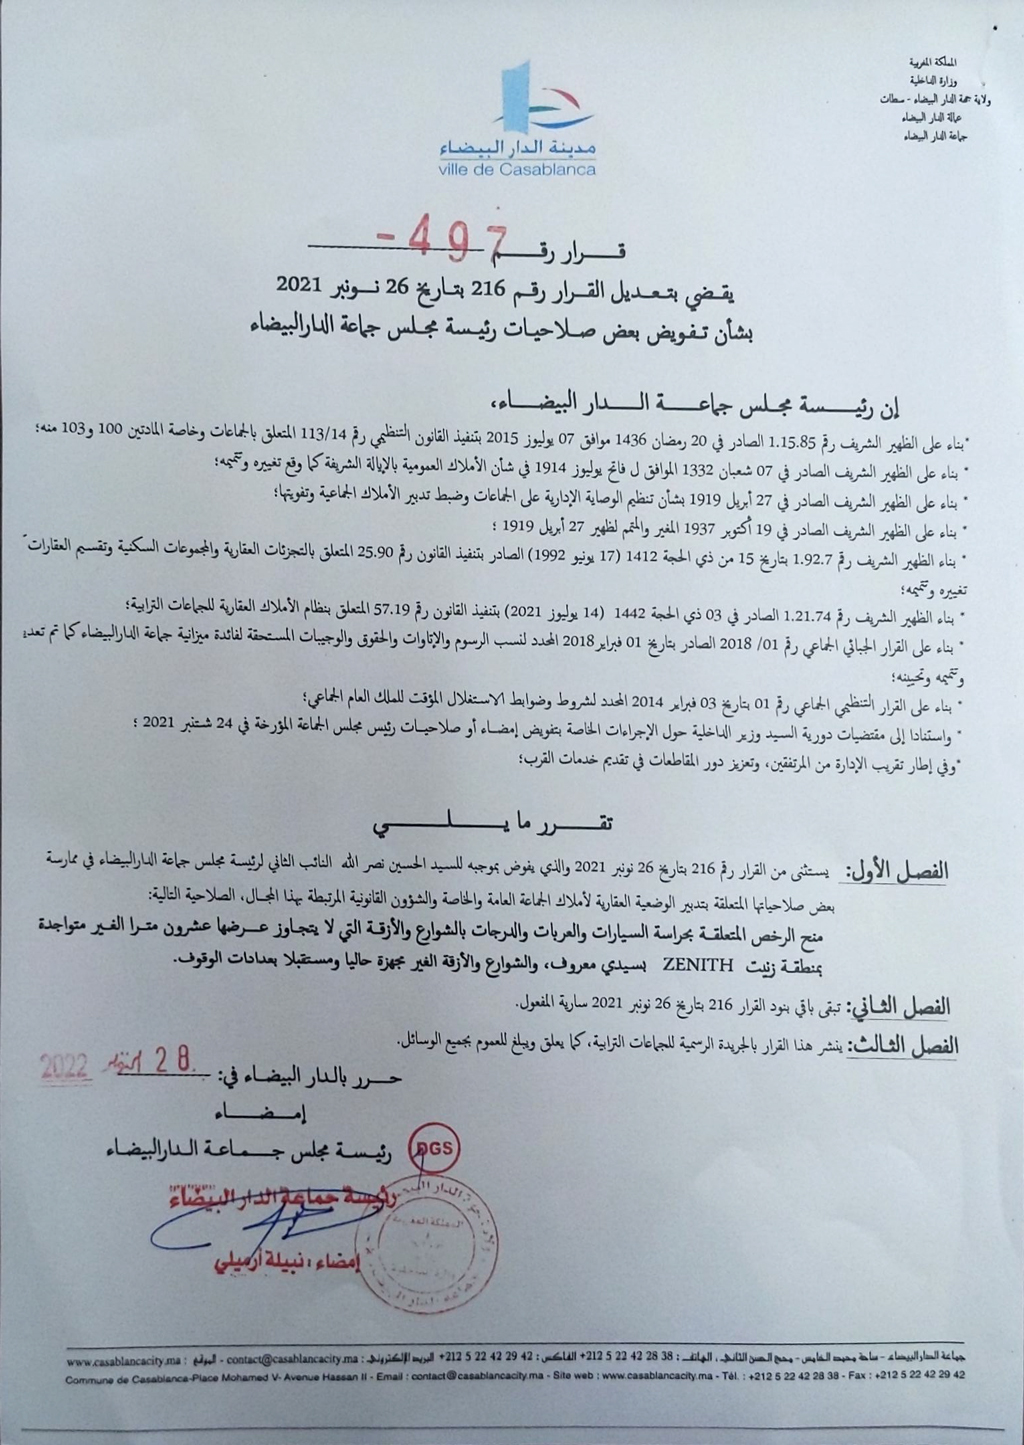 المملكة المغربية
وزارة الداخلية
ولاية جهة الدار البيضاء - سطات
عمالة الدار البيضاء
جماعة الدار البيضاء
مدينة الدار البيضاء
ville de Casablanca
قـــرار رقـــم 497 -
يقـضي بتـعـديل القـرار رقـم 216 بتـاريخ 26 نـونبر 2021
بشأن تـفـويض بعض صـلاحيات رئيسة مجلس جماعة الدارالبيضاء
إن رئيـــسة مجـلس جماعــــة الــــدار البيضــــاء،
*بناء على الظهير الشريف رقم 1.15.85 الصادر في 20 رمضان 1436 موافق 07 يوليوز 2015 بتنفيذ القانون التنظيمي رقم 113/14 المتعلق بالجماعات وخاصة المادتين 100 و103 منه؛
* بناء على الظهير الشريف الصادر في 07 شعبان 1332 الموافق ل فاتح يوليوز 1914 في شأن الأملاك العمومية بالإيالة الشريفة كما وقع تغييره وتتميمه؛
* بناء على الظهير الشريف الصادر في 27 أبريل 1919 بشأن تنظيم الوصاية الإدارية على الجماعات وضبط تدبير الأملاك الجماعية وتفويتها؛
* بناء على الظهير الشريف الصادر في 19 أكتوبر 1937 المغير والمتمم لظهير 27 أبريل 1919 ؛
* بناء الظهير الشريف رقم 1.92.7 بتاريخ 15 من ذي الحجة 1412 (17 يونيو 1992) الصادر بتنفيذ القانون رقم 25.90 المتعلق بالتجزئات العقارية والمجموعات السكنية وتقسيم العقارات
تغييره وتتميمه؛
* بناء الظهير الشريف رقم 1.21.74 الصادر في 03 ذي الحجة 1442 (14 يوليوز 2021) بتنفيذ القانون رقم 57.19 المتعلق بنظام الأملاك العقارية للجماعات الترابية؛
* بناء على القرار الجبائي الجماعي رقم 01/ 2018 الصادر بتاريخ 01 فبراير2018 المحدد لنسب الرسوم والإتاوات والحقوق والوجيبات المستحقة لفائدة ميزانية جماعة الدارالبيضاء كما تم تعديـ
وتتميمه وتحيينه؛
* بناء على القرار التنظيمي الجماعي رقم 01 بتاريخ 03 فبراير 2014 المحدد لشروط وضوابط الاستغلال المؤقت للملك العام الجماعي؛
* واستنادا إلى مقتضيات دورية السيد وزير الداخلية حول الإجراءات الخاصة بتفويض إمضاء أو صلاحيات رئيس مجلس الجماعة المؤرخة في 24 شتنبر 2021 ؛
*وفي إطار تقريب الإدارة من المرتفقين، وتعزيز دور المقاطعات في تقديم خدمات القرب؛
تقـــرر ما يـــلـــــي
الفصل الأول: يستثنى من القرار رقم 216 بتاريخ 26 نونبر 2021 والذي يفوض بموجبه للسيد الحسين نصر الله النائب الثاني لرئيسة مجلس جماعة الدارالبيضاء في ممارسة
بعض صلاحياتها المتعلقة بتدبير الوضعية العقارية لأملاك الجماعة العامة والخاصة والشؤون القانونية المرتبطة بهذا المجال، الصلاحية التالية:
منح الرخص المتعلقة بحراسة السيارات والعربات والدرجات بالشوارع والأزقة التي لا يتجاوز عـرضها عشرون مترا الغير متواجدة
بمنطقـة زنيت ZENITH بسيدي معروف، والشوارع والأزقة الغير مجهزة حاليا ومستقبلا بعدادات الوقوف.
الفصل الثاني: تبقى باقي بنود القرار 216 بتاريخ 26 نونبر 2021 سارية المفعول.
الفصل الثالث: ينشر هذا القرار بالجريدة الرسمية للجماعات الترابية، كما يعلق ويبلغ للعموم بجميع الوسائل.
حـــرر بالـدار البيضـاء في: 28 أكتوبر 2022
إمـضــــاء
رئيـسة مجلس جـــماعـة الـدارالبيضاء
DGS
رئيسة جماعة الدار البيضاء
إمضاء : نبيلة أرميلي
جماعة الدارالبيضاء - ساحة محمد الخامس - محج الحسن الثاني ، الهاتف : 38 28 42 22 5 212+ الفاكس : 42 29 42 22 5 212+ البريد الإلكتروني : contact@casablancacity.ma - الموقع : www.casablancacity.ma
Commune de Casablanca-Place Mohamed V- Avenue Hassan II - Email : contact@casablancacity.ma - Site web : www.casablancacity.ma - Tél. : +212 5 22 42 28 38 - Fax : +212 5 22 42 29 42